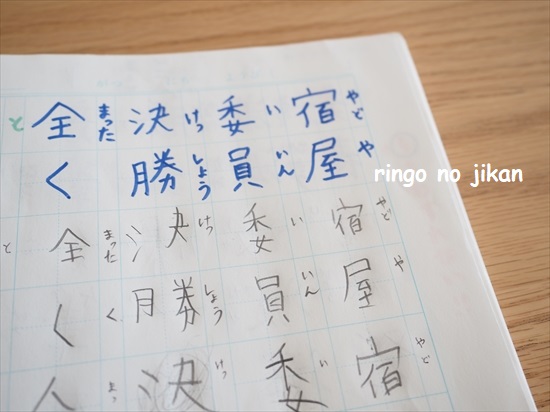 宿屋
やどや
委員
いいん
決勝
けっしょう
全く
まった
と
宿屋
やどや
委員
いいん
決勝
けっしょう
全く
まったく
と
宿
やど
委
い
決
けっ
ringo no jikan